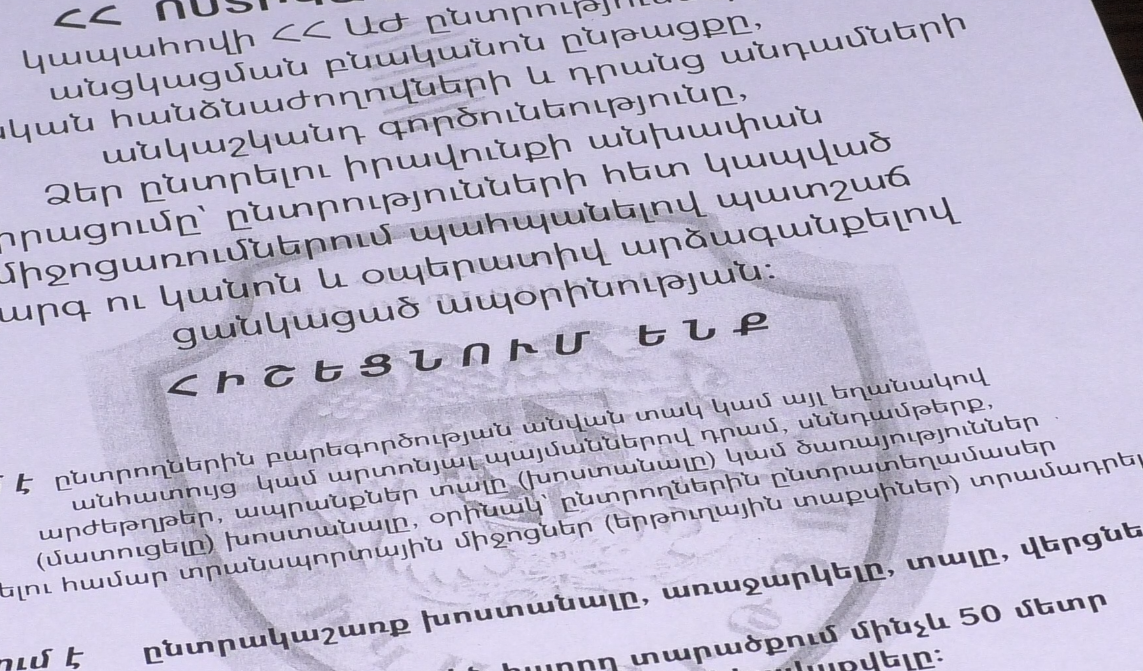 ՀՀ
կապահովի ՀՀ ԱԺ
անցկացման բնականոն ընթացքը,
հանձնաժողովների և դրանց անդամների
անկաշկանդ գործունեությունը,
Ձեր ընտրելու իրավունքի անխափան
ընտրությունների հետ կապված
միջոցառումներում պահպանելով պատշաճ
ու կանոն և օպերատիվ արձագանքելով
ցանկացած ապօրինության:
ՀԻՇԵՑՆՈՒՄ ԵՆՔ
է ընտրողներին բարեգործության անվան տակ կամ այլ եղանակով
անհատույց կամ արտոնյալ պայմաններով դրամ, սննդամթերք,
արժեթղթեր, ապրանքներ տալը (խոստանալը) կամ ծառայություններ
(մատուցելը) խոստանալը, օրինակ՝ ընտրողներին ընտրատեղամասեր
համար տրանսպորտային միջոցներ (երթուղային տաքսիներ)
է ընտրակաշառք խոստանալը, առաջարկելը, տալը,
տարածքում մինչև 50 մետր